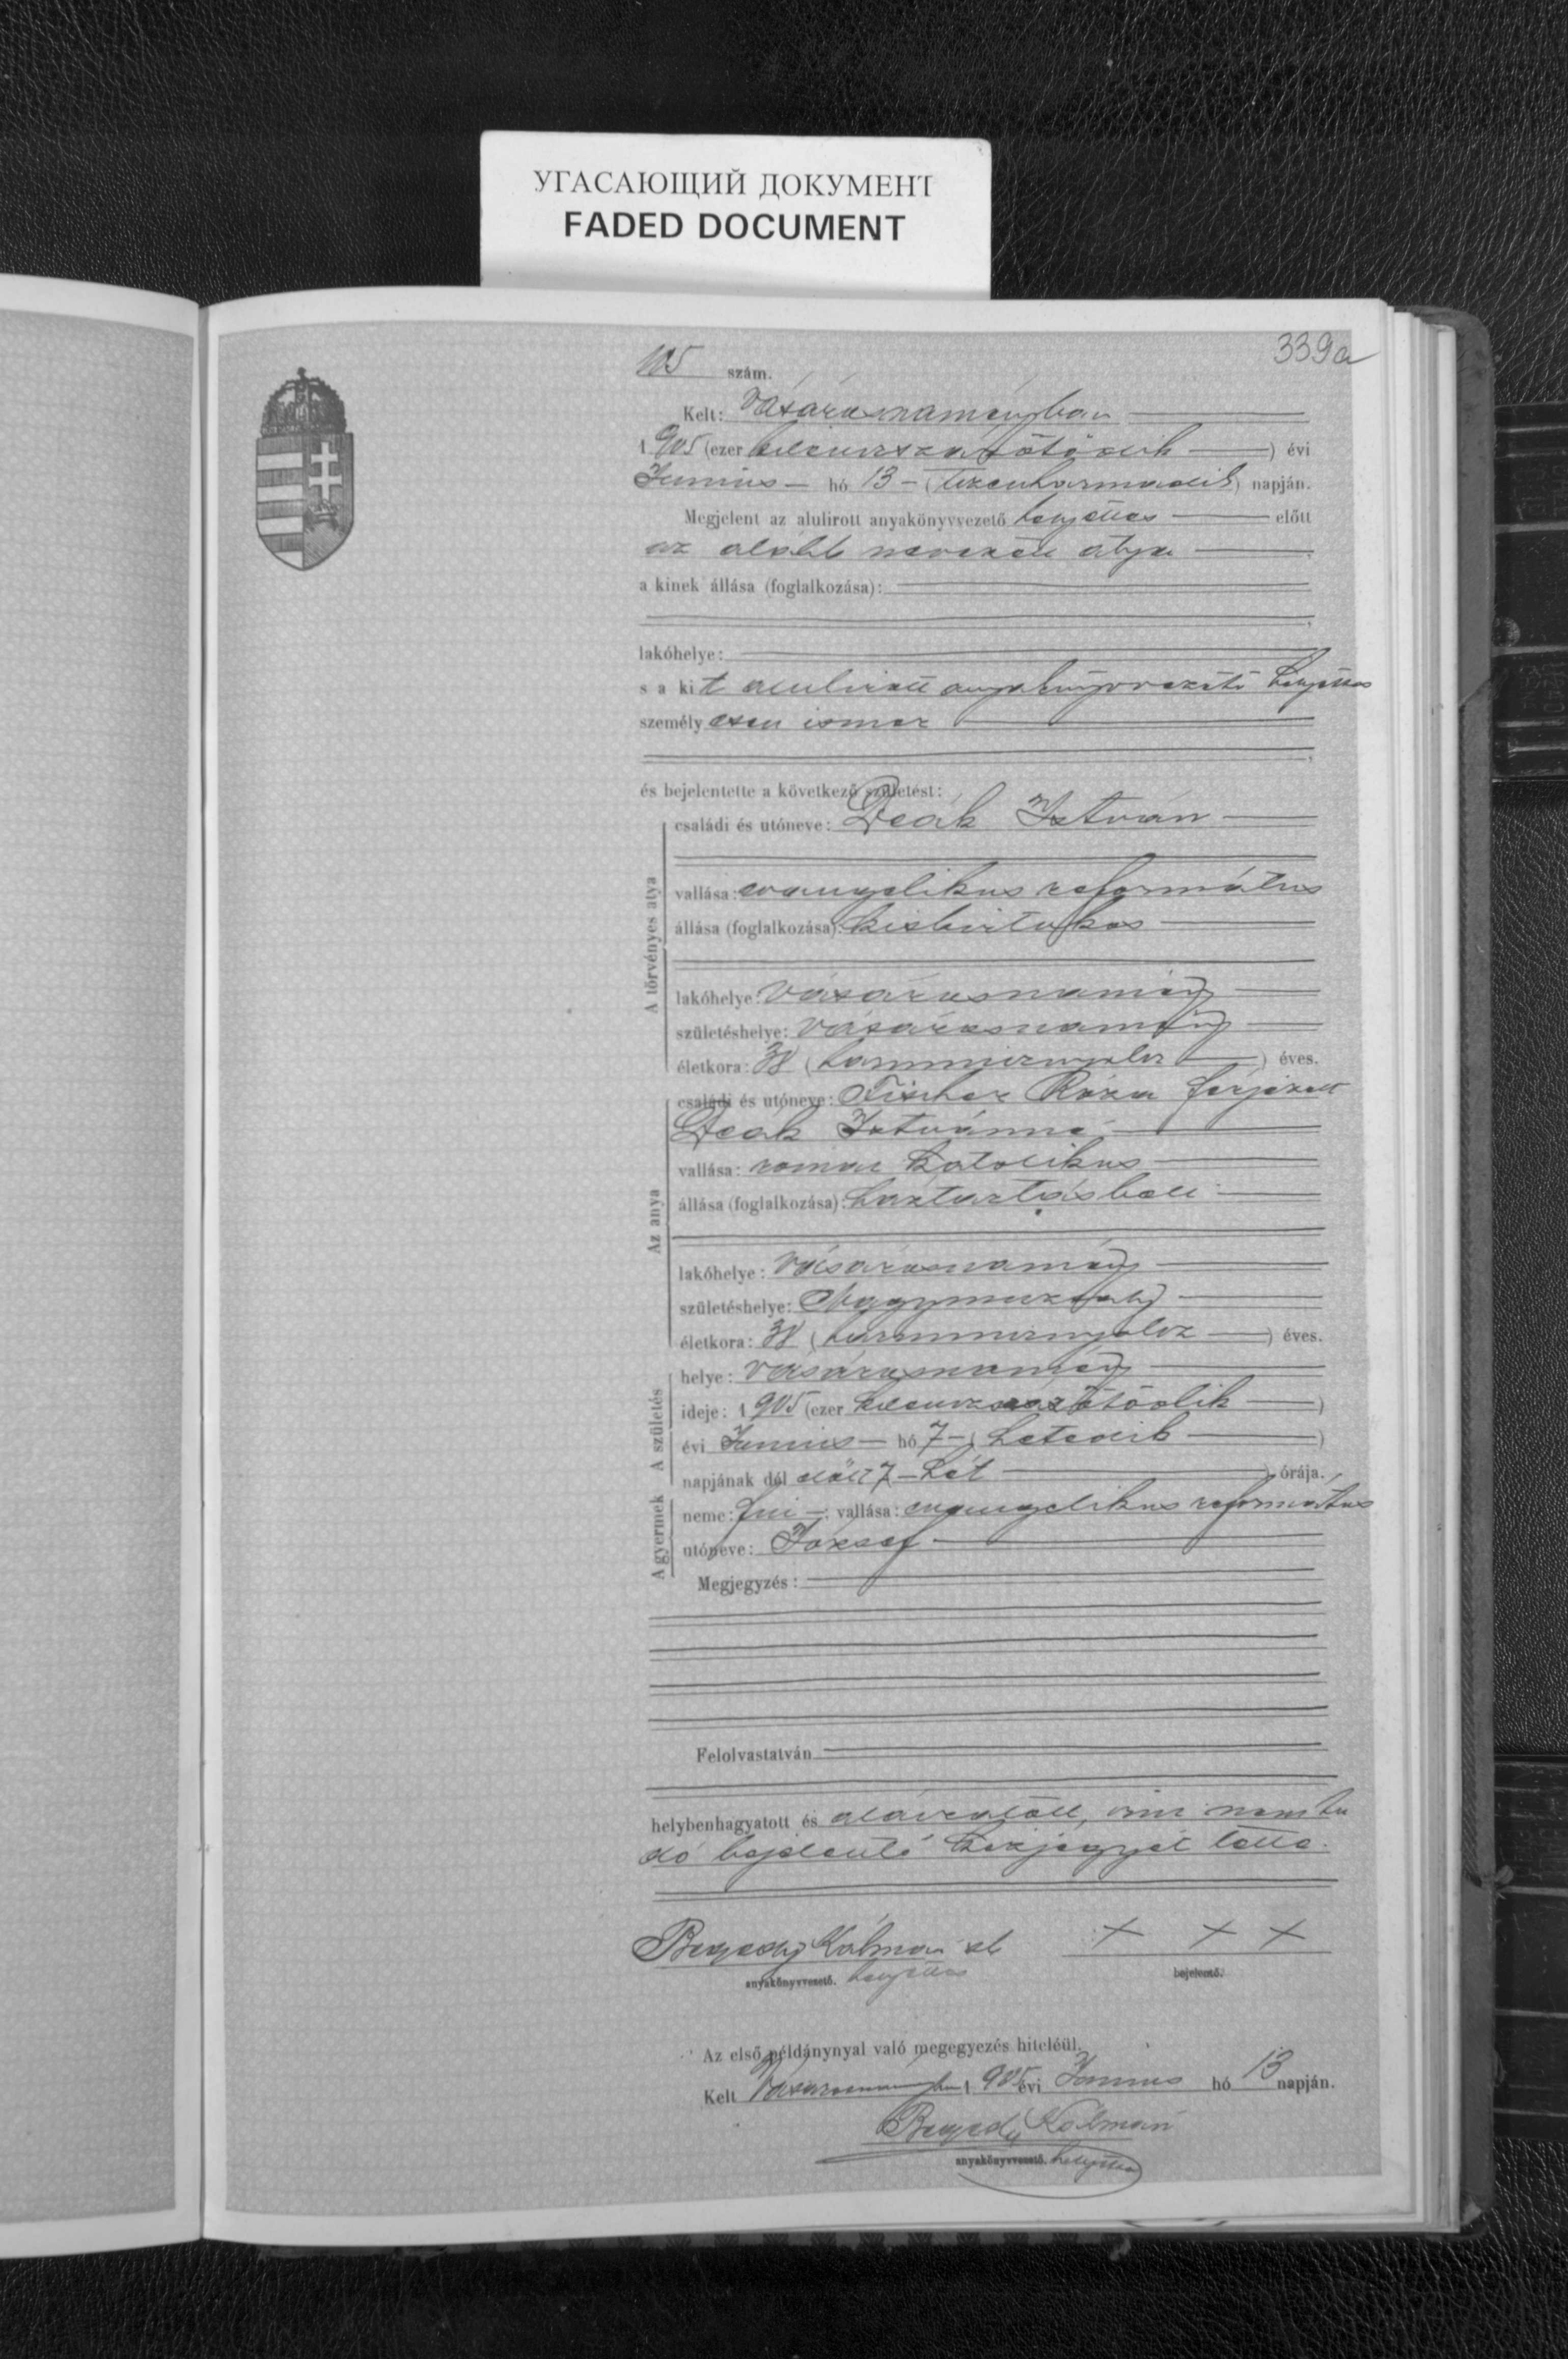 УГАСАЮЩИЙ ДОКУМЕНТ
FADED DOCUMENT
339a
105 szám.
Kelt: Vásárosnaményban
1905 (ezer kilenczszázötödik) évi
Junius hó 13 (tizenharmadik) napján.
Megjelent az alulirott anyakönyvvezető helyettes előtt
az alább nevezett atya
a kinek állása (foglalkozása):
lakóhelye:
s a kit alulirott anyakönyvvezető helyettes
személyesen ismer
és bejelentette a következő születést:
A törvényes atya
családi és utóneve: Deák István
vallása: evangelikus református
állása (foglalkozása): kisbirtokos
lakóhelye: Vásárosnamény
születéshelye: Vásárosnamény
életkora: 38 (harmincznyolcz) éves.
Az anya
családi és utóneve: Fischer Róza férjezett
Deák Istvánné
vallása: római katolikus
állása (foglalkozása): háztartásbeli
lakóhelye: Vásárosnamény
születéshelye: Nagymuzsaly
életkora: 38 (harmincznyolcz) éves.
A születés
helye: Vásárosnamény
ideje: 1905 (ezer kilenczszázötödik)
évi Junius hó 7 (hetedik)
napjának dél előtt 7 hét órája.
A gyermek
neme: fiu vallása: evangelikus református
utóneve: József
Megjegyzés:
Felolvastatván
helybenhagyatott és aláiratott, irni nem tu
dó bejelentő kézjegyét tette.
Kálmán sk + + +
anyakönyvvezető. helyettes bejelentő.
Az első példánynyal való megegyezés hiteléül.
Kelt Vásárosnaményban 1905 évi Junius hó 13 napján.
Kálmán
anyakönyvvezető. helyettes